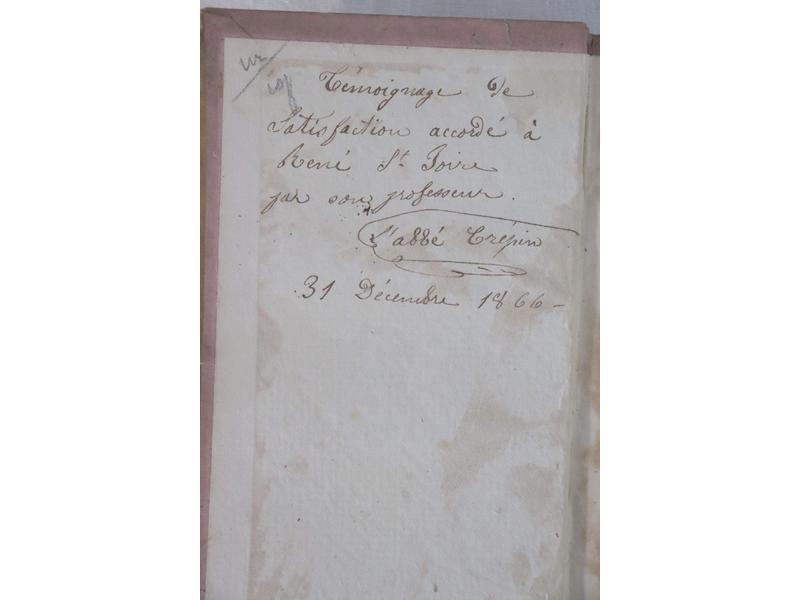 Témoignage de
Satisfaction accordé à
René St Foire
par son professeur.
L'abbé Crépin
31 Décembre 1866 –